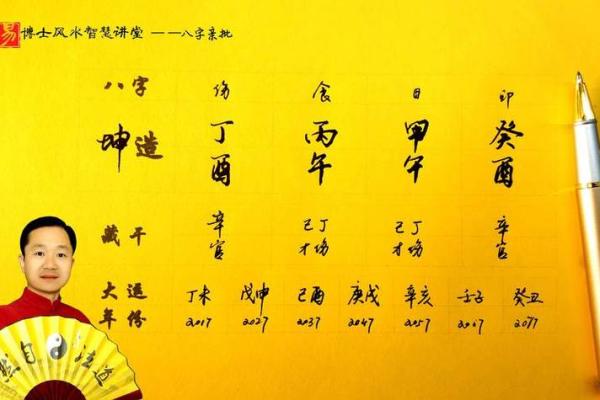 易 博士风水智慧讲堂 ——八字亲批
八字 伤 食 日 印
坤造 丁 丙 甲 癸
酉 午 午 酉
藏干 辛 己丁 己丁 辛
官 才伤 才伤 官
大运 丁未 戊申 己酉 庚戌 辛亥 壬子 癸丑
年份 2017 2027 2037 2047 2057 2067 2077
然自法道